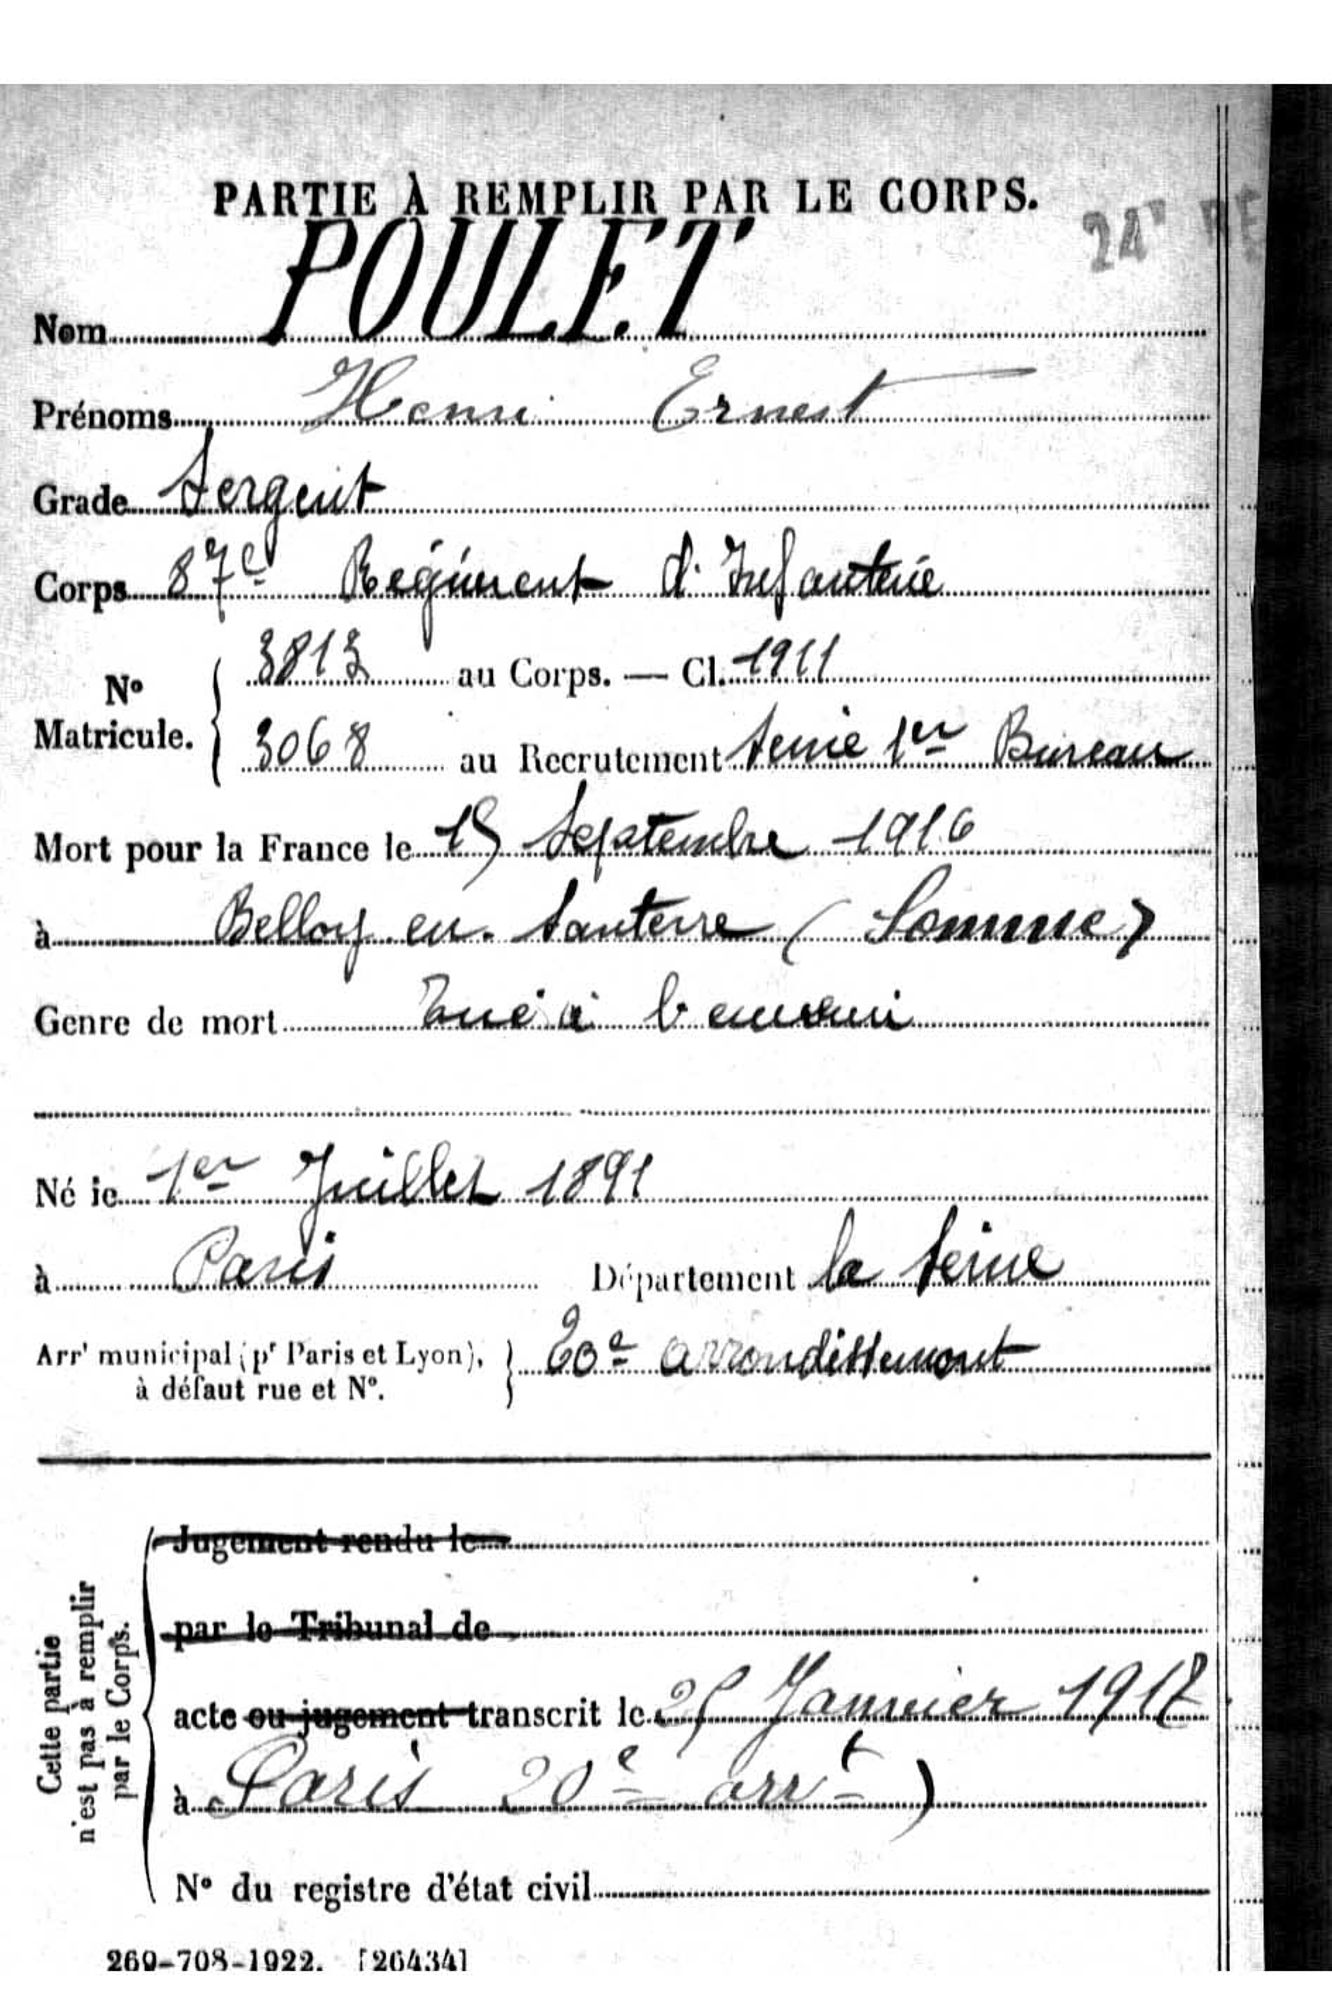 PARTIE À REMPLIR PAR LE CORPS.
24e RE
Nom POULET
Prénoms Henri Ernest
Grade Sergent
Corps 87e Régiment d'Infanterie
No Matricule. { 3813 au Corps. — Cl. 1911
3068 au Recrutement Seine 1er Bureau
Mort pour la France le 15 Septembre 1916
à Belloy en Santerre (Somme)
Genre de mort Tué à l'ennemi
Né le 1er Juillet 1891
à Paris Département la Seine
Arrt municipal (pr Paris et Lyon), à défaut rue et No. } 20e arrondissement
Cette partie n'est pas à remplir par le Corps.
Jugement rendu le
par le Tribunal de
acte ou jugement transcrit le 25 Janvier 1917
à Paris 20e arrt)
No du registre d'état civil
269-708-1922. [26434]